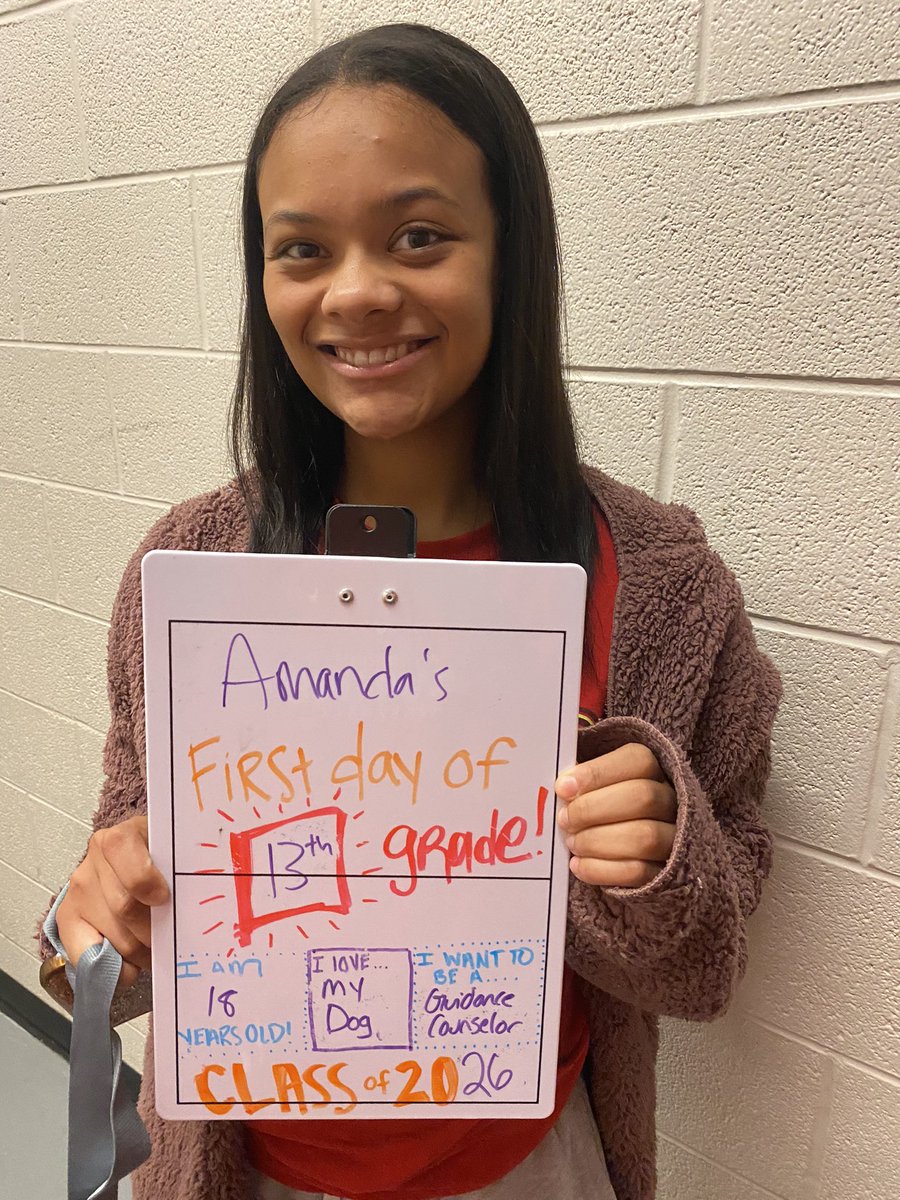 Amanda's
First day of
13th grade!
I am
18
YEARS OLD!
I love...
my
Dog
I WANT TO
BE A
Guidance
Counselor
CLASS of 2026